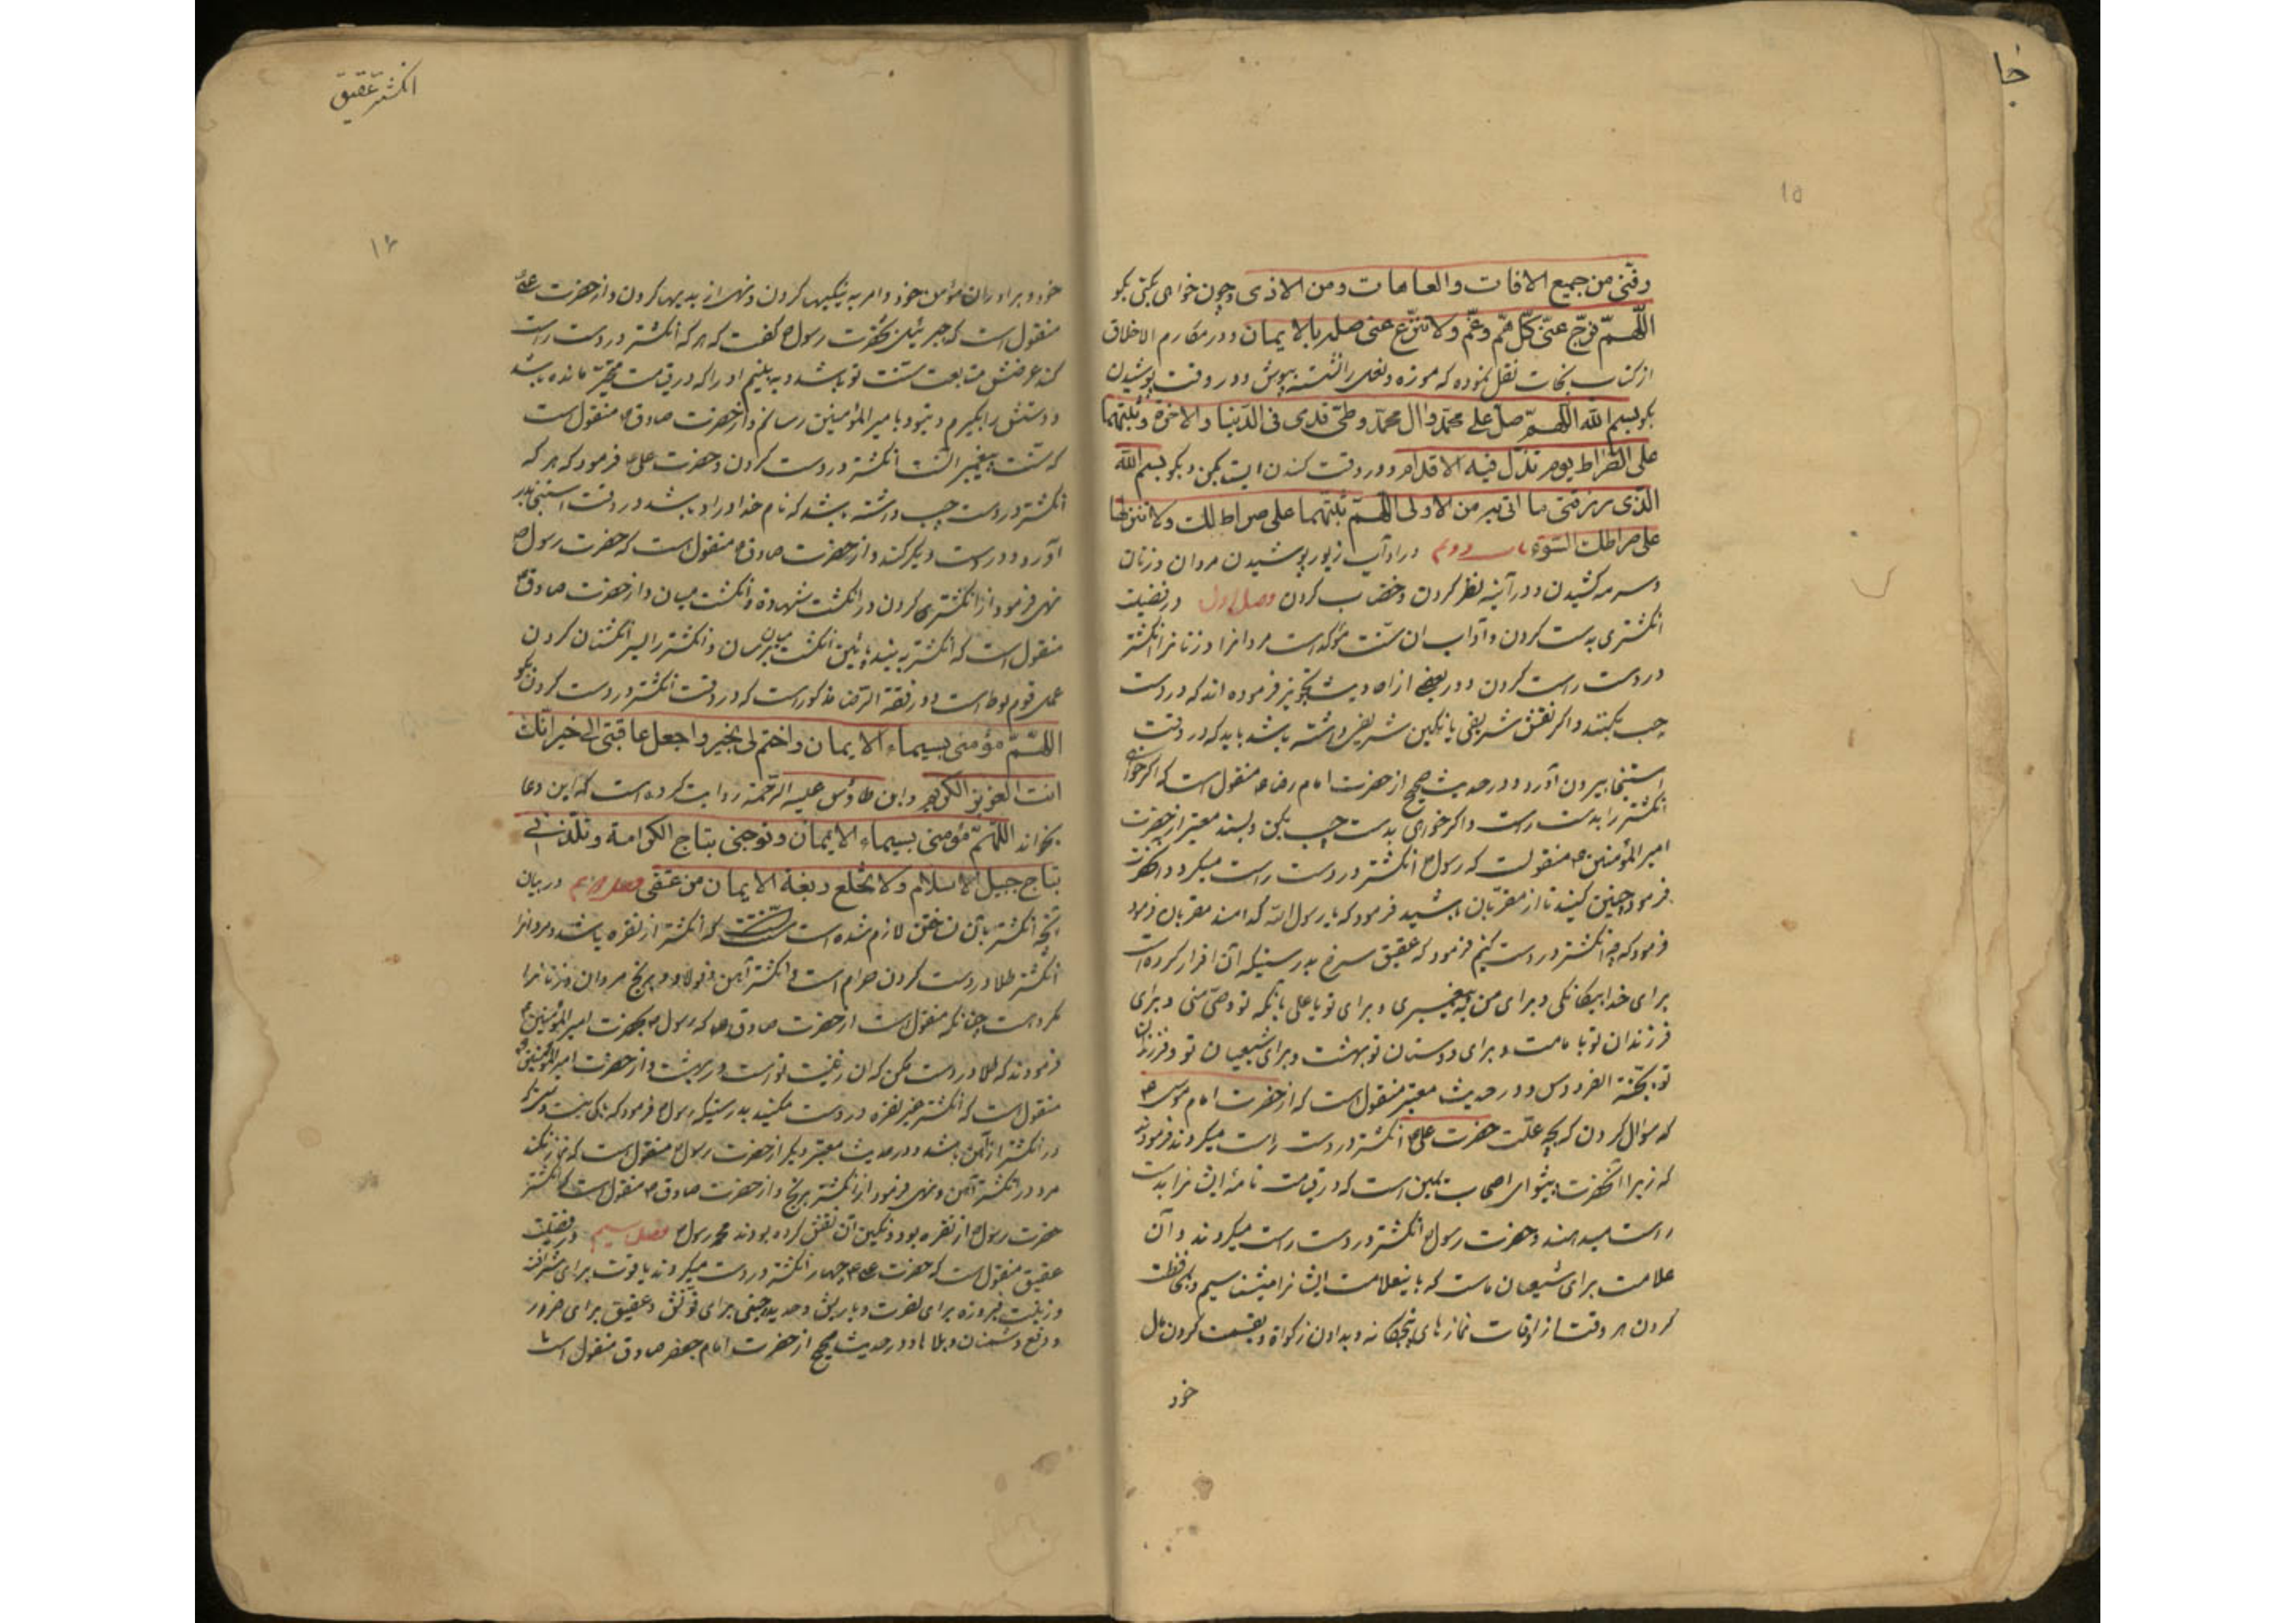 جا
۱۵
وقنی من جمیع الافات والعاهات ومن الاذی وچون خواهی بکنی بکو
اللّهمّ فرّج عنّی کلّ همّ وغمّ ولا تنزع عنی حلة الایمان ودر مکارم الاخلاق
از کتاب نجات نقل نموده که موزه ونعل را نشسته بپوش ودر وقت پوشیدن
بکو بسم الله اللّهمّ صلّ علی محمّد وال محمّد وطّی قدمی فی الدّنیا والاخرة وثبّتهما
علی الصّراط یوم تزلّ فیه الاقدام ودر وقت کندن ایستاده بکن وبکو بسم الله
الّذی رزقنی ما اقی به من الاولی اللّهمّ ثبّتهما علی صراطک ولا تنزلهما
علی صراطک السّوّی باب دویم در اداب زیور پوشیدن مردان وزنان
وسرمه کشیدن ودر آینه نظر کردن وخضاب کردن فصل اول در فضیلت
انکشتری بدست کردن وآداب ان سنّت مؤکد است مردانرا وزنانرا انکشتر
در دست راست کردن ودر بعضی از احادیث تجویز فرموده اند که در دست
چپ بکنند واکر نقش شریفی یا نکین شریفی داشته باشد باید که در وقت
استنجا بیرون آورد ودر حدیث صحیح از حضرت امام رضا ع منقول است که اکر خواهی
انکشتر را بدست راست واکر خواهی بدست چپ بکن وبسند معتبر از حضرت
امیر المؤمنین ع منقولست که رسول ص انکشتر در دست راست میکرد
فرمود چنین کنید تا از مقرّبان باشید فرمود که یا رسول الله کدامند مقربان فرمود
فرمود که چه انکشتر در دست کنم فرمود که عقیق سرخ بدرستیکه آن اقرار کرده است
برای خدا بیکانکی وبرای من به پیغمبری وبرای تو یا علی بانکه تو وصیّ منی وبرای
فرزندان تو با مامت وبرای دوستان تو بهشت وبرای شیعیان تو وفرزندان
تو بجنّة الفردوس ودر حدیث معتبر منقول است که از حضرت امام موسی ع
که سؤال کردن که بچه علّت حضرت علی ع انکشتر در دست راست میکردند فرمودند
که زیرا آنحضرت پیشوای اصحاب یمین است که در قیامت نامهٔ ایشانرا بدست
راست میدهند وحضرت رسول ص انکشتر در دست راست میکردند وآن
علامت برای شیعیان ماست که باینعلامت ایشانرا میشناسیم وبمحافظت
کردن هر وقت از اوقات نمازهای پنجکانه وبدادن زکواة وبقسمت کردن مال
خود
انکشتر عقیق
۱۶
خود وبرادران مؤمن خود وامر به نیکیها کردن ونهی از بدیها کردن واز حضرت علی ع
منقول است که جبرئیل بحضرت رسول ص کفت که هر که انکشتر در دست راست
کند وغرضش متابعت سنّت تو باشد وبه بینم او را که در قیامت متحیّر مانده باشد
دستش را بکیرم وبتو وبا میر المؤمنین رسانم واز حضرت صادق ع منقول است
که سنّت پیغمبر انست انکشتر در دست کردن وحضرت علی ع فرمود که هر که
انکشتر در دست چپ داشته باشد که نام خدا در او باشد در وقت استنجا بدر
آورد ودر دست دیکر کند واز حضرت صادق ع منقول است که حضرت رسول ص
نهی فرمود از انکشتری کردن در انکشت شهاده وانکشت میان واز حضرت صادق ع
منقول است که انکشتر به بندپائین انکشت برسان وانکشتر را بسر انکشتان کردن
عمل قوم لوط است ودر فقة الرّضا مذکور است که در وقت انکشتر در دست کردن بکو
اللهمّ سومنی بسیماء الایمان واختم لی بخیر واجعل عاقبتی الی خیر انّک
انت العزیز الکریم وابن طاوٌس علیه الرّحمة روایت کرده است که این دعا
بخواند اللّهمّ سومنی بسیماء الایمان وتوجنی بتاج الکرامة وقلّدنی
بتاج حبل الاسلام ولا تخلع ربقة الایمان من عنقی فصل دویم در بیان
آنچه انکشتر بآن ساختن لازم شده است سنّتست که انکشتر از نقره باشد ومردانرا
انکشتر طلا در دست کردن حرام است وانکشتر آهن وفولاد وبرنج مردان وزنانرا
مکروهست چنانکه منقول است از حضرت صادق ع که رسول ص بحضرت امیر المؤمنین ع
فرمودند که طلا در دست مکن که آن زینت تو است در بهشت واز حضرت امیر المؤمنین ع
منقول است که انکشتر غیر نقره در دست مکنید بدرستیکه رسول ص فرمود که پاک نیست دستی که
در انکشتر از آهن باشد ودر حدیث معتبر دیکر از حضرت رسول ص منقول است که نماز نکند
مرد در انکشتر آهن ونهی فرمود از انکشتر برنج واز حضرت صادق ع منقول است که انکشتر
حضرت رسول ص از نقره بود ونکین آن نقش کرده بودند محمد رسول ص فصل سیم در فضیلت
عقیق منقول است که حضرت علی ع چهار انکشتر در دست میکردند یاقوت برای شرافت
وزینت فیروزه برای نصرت ویاریش وحدید چینی برای قوّتش وعقیق برای حرز
ودفع دشمنان وبلاها ودر حدیث صحیح از حضرت امام جعفر صادق منقول است